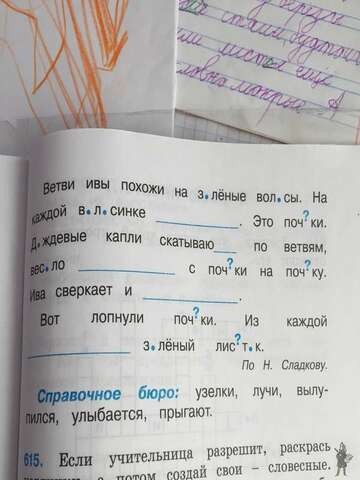 берези
листья еще
Ветви ивы похожи на з.лёные вол.сы. На
каждой в.л.синке ________. Это поч?ки.
Д.ждевые капли скатываю__ по ветвям,
вес.ло ________ с поч?ки на поч?ку.
Ива сверкает и ________.
Вот лопнули поч?ки. Из каждой
________ з.лёный лис?т.к.
По Н. Сладкову.
Справочное бюро: узелки, лучи, вылу-
пился, улыбается, прыгают.
615. Если учительница разрешит, раскрась
а потом создай свои – словесные.